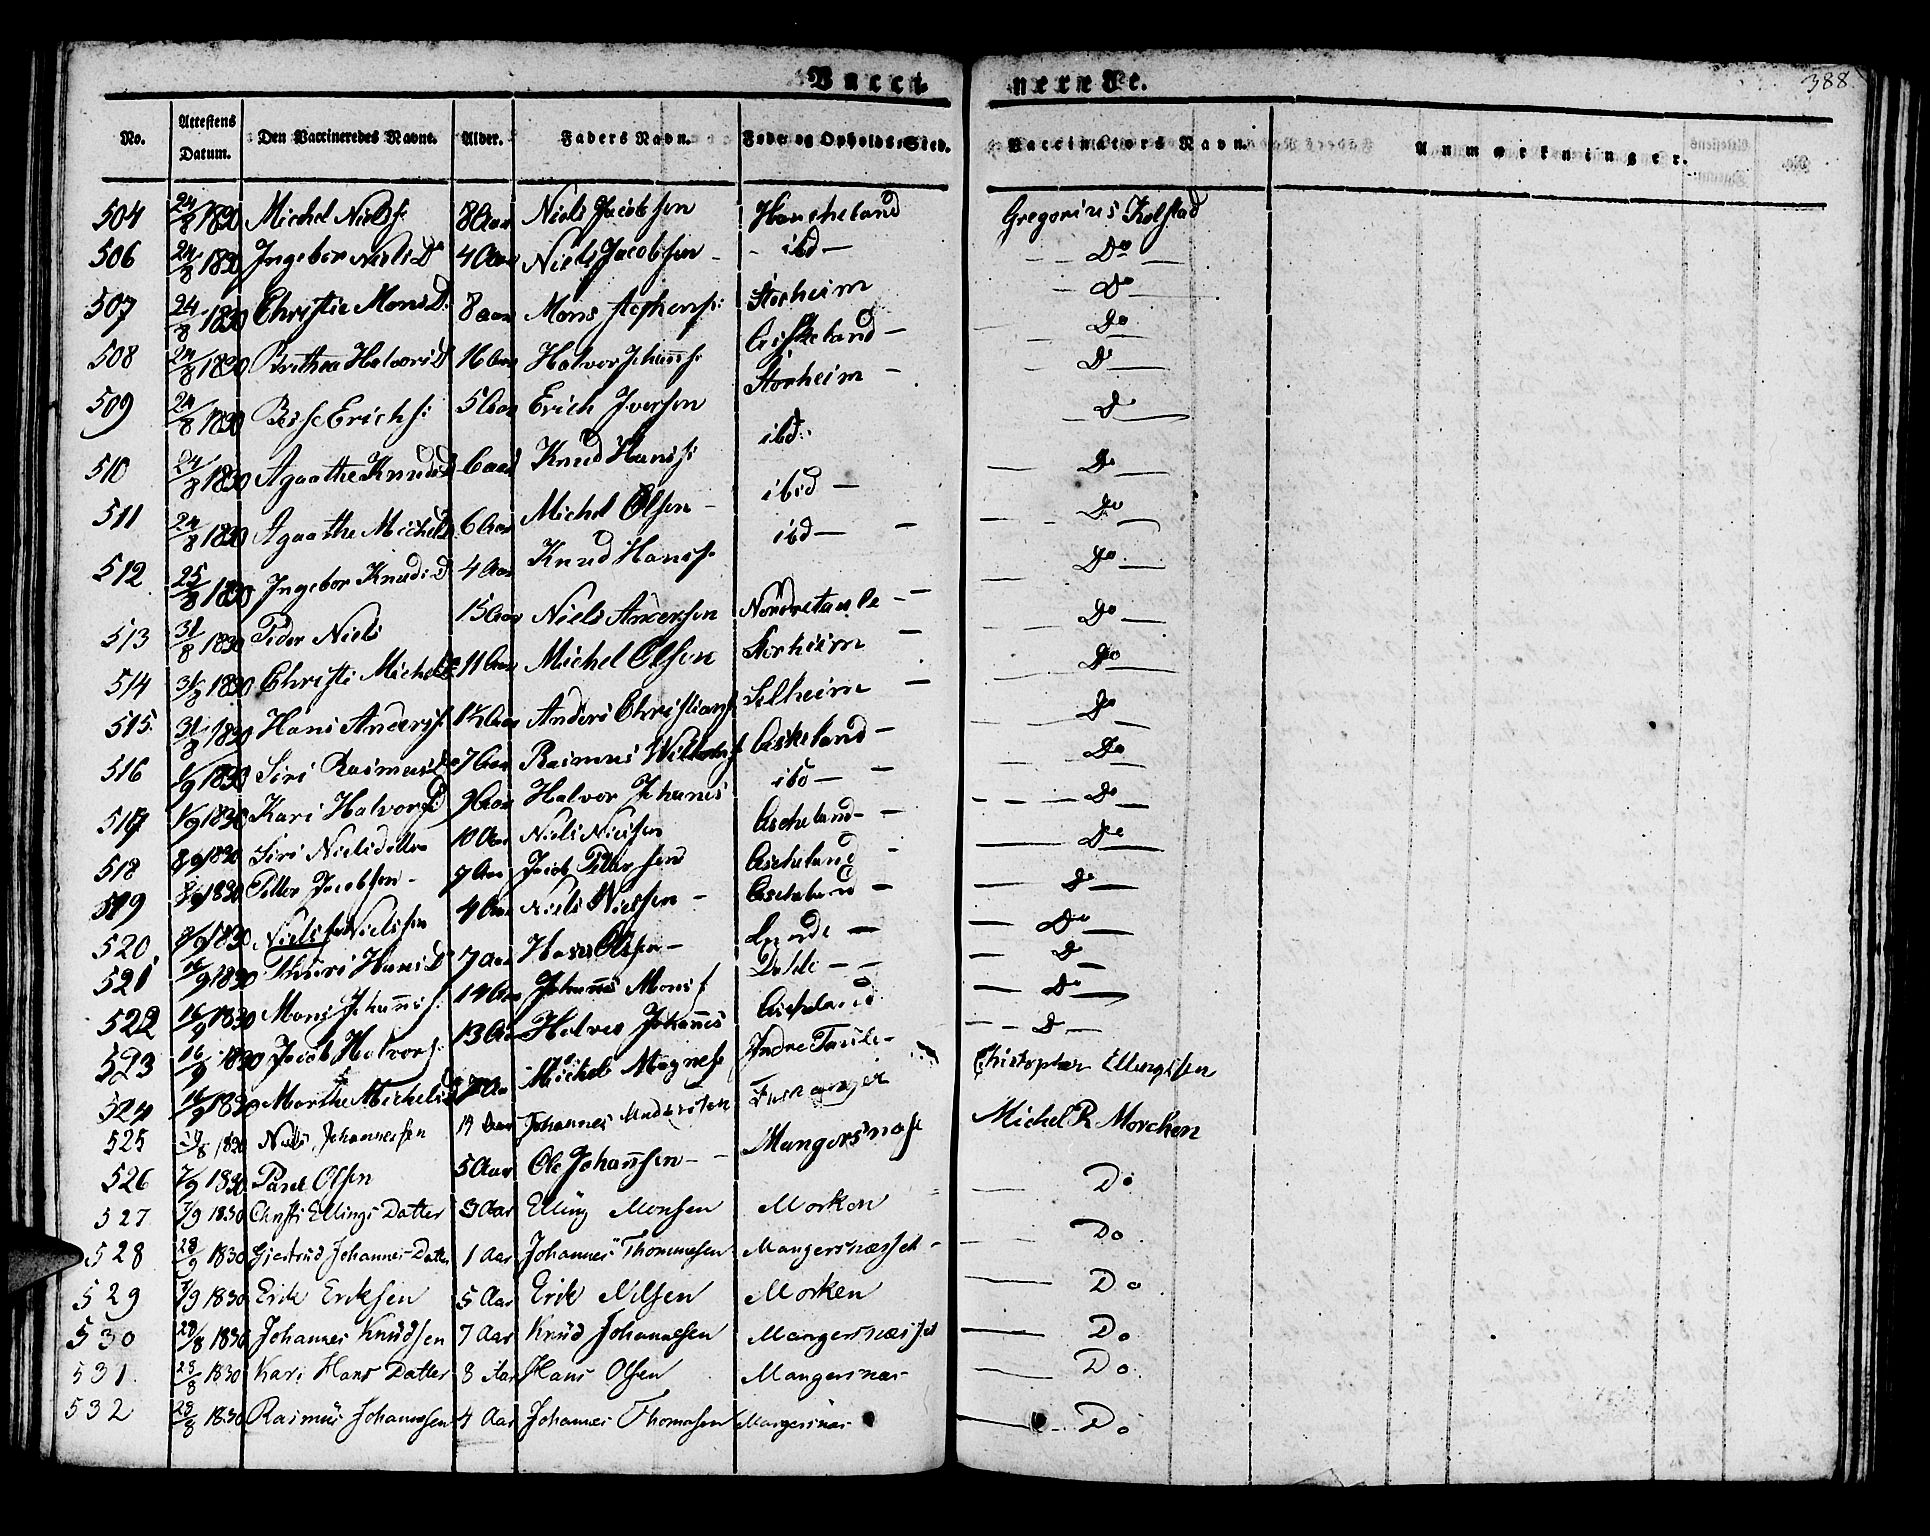 Vacci nerede. 388
No. Attestens Datum. Den Vaccineredes Navne. Alder. Faders Navn. Føde og Opholds-Sted. Vaccinators Navn. Anmærkninger.
504 24/8 1830 Michel Nielss: 8 Aar Niels Jacobsen Gregorius Kolstad
506 24/8 1830 Ingebor Niels D 4 Aar Niels Jacobsen - - ibd - - - Do -
507 24/8 1830 Christie Mons D: 8 aar Mons Stephens: Storheim Do
508 24/8 1830 Brithea Halvors D 16 Aar Halvor Johans: Askeland - - Do
509 24/8 1830 Erichs: 5 Aar Erich Iversen Storheim - - Do
510 24/8 1830 Agaathe Knuds D 6 aar Knud Hanss: ibd: - Do
511 24/8 1830 Agaathe Michels D 6 Aar Michel Olsen - ibid - - Do -
512 25/8 1830 Ingebor Knuds: D 4 Aar Knud Hanss: ibd - - Do
513 31/8 1830 Peder Niels 15 Aar Niels Andersen Nordretaule - - Do -
514 31/8 1830 Christi Michels D 11 Aar Michel Olsen Storheim - Do -
515. 31/8 1830 Hans Anderss: Aar Anders Christians: Selheim - Do
516 1/9 1830 Siri Rasmus D 7 Aar Rasmus Askeland - Do
517 1/9 1830 Kari Halvors D 9 Aar Halvor Johanes ibd - - Do
518 8/9 1830 Siri Nielsdatter 10 Aar Niels Nielsen Ascheland - - Do
519 8/9 1830 Petter Jacobsen - 7 Aar Jacob Pettersen Ascheland - Do
520 8/9 1830 Niels Nielsen 4 Aar Niels Nielsen - Ascheland - Do
521 16/9 1830 Hans D 7 Aar Hans Olsen - - Do
522 16/9 1830 Mons Johanness: 14 Aar Johannes Monss: Dahle - - Do
523 16/9 1830 Jacob Halvors: 13 Aar Halvor Johannes Ascheland - Do
524 16/9 1830 Marthe Michels D Aar Michel Magness: Indre Taule - Christopher Ellingsen
525 1830 Niels Johannessen Aar Johannes Andersen Fusanger Michel R Morcken
526 7/9 1830 Olsen 5 Aar Ole Johannsen - - Mangersnæs Do
527 7/9 1830 Christi Ellings Datter 3 Aar Elling Monsen Morken Do
528 28/9 1830 Giertrud Johannes Datter 1 Aar Johannes Thommesen Mangersnæsset - Do
529 7/9 1830 Erik Eriksen 5 Aar Erik Nilsen Morken Do
530 28/8 1830 Johannes Knudsen 7 Aar Knud Johannesen Mangersnæsset Do
531. 28/8 1830 Kari Hans Datter 8 Aar Hans Olsen Mangersnæs Do
532 28/8 1830 Rasmus Johannesen 4 Aar Johannes Thomesen Mangersnæs Do